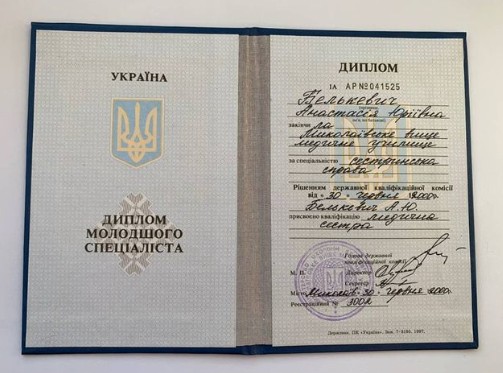 УКРАЇНА
ДИПЛОМ
МОЛОДШОГО
СПЕЦІАЛІСТА
ДИПЛОМ
ІА АР№041525
Белькевич
Анастасія Юріївна
закінчила
Миколаївське вище
медичне училище
за спеціальністю сестринська
справа
Рішенням державної кваліфікаційної комісії
від «30» червня 2000р.
Белькевич А.Ю.
присвоєно кваліфікацію медична
сестра
Голова державної
кваліфікаційної комісії
М. П. Директор
Секретар
Місто Миколаїв «30» червня 2000р.
Реєстраційний №